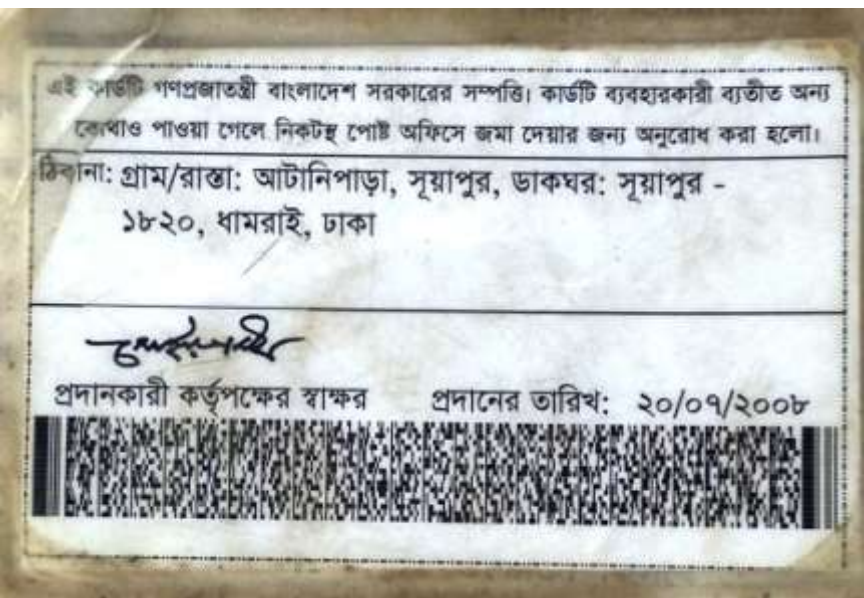 এই কার্ডটি গণপ্রজাতন্ত্রী বাংলাদেশ সরকারের সম্পত্তি। কার্ডটি ব্যবহারকারী ব্যতীত অন্য
কোথাও পাওয়া গেলে নিকটস্থ পোষ্ট অফিসে জমা দেয়ার জন্য অনুরোধ করা হলো।
ঠিকানা: গ্রাম/রাস্তা: আটানিপাড়া, সূয়াপুর, ডাকঘর: সূয়াপুর -
১৮২০, ধামরাই, ঢাকা
প্রদানকারী কর্তৃপক্ষের স্বাক্ষর প্রদানের তারিখ: ২০/০৭/২০০৮